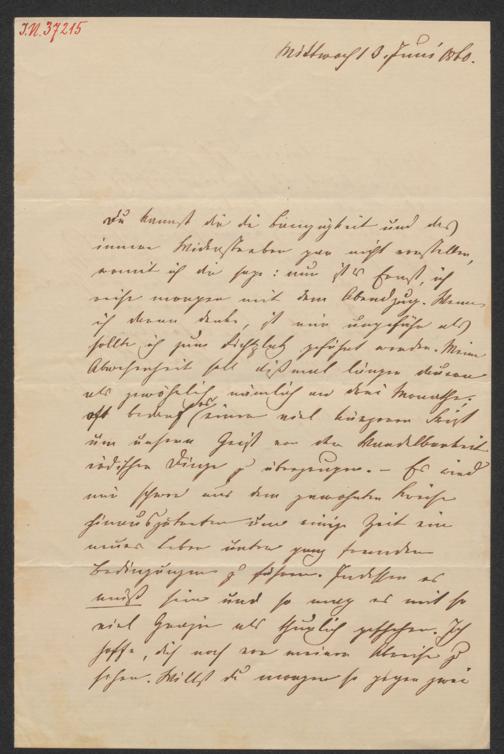 I.N. 37215
Mittwoch 3. Juni 1860.
Du kannst dir die Bangigkeit und das
innere Widerstreben gar nicht vorstellen,
womit ich dir sage: nun ist's Ernst, ich
reise morgen mit dem Abendzug. Wenn
ich daran denke, ist mir ungefähr als
sollte ich zum Richtplatz geführt werden. Meine
Abwesenheit soll dißmal länger dauern
als gewöhnlich nämlich an drei Monathe.
Oft bedarf es einer viel kürzeren Frist
um unsern Geist von der Wandelbarkeit
irdischer Dinge zu überzeugen. – Es wird
mir schwer aus dem gewohnten Kreise
hinauszutreten um einige Zeit ein
neues Leben unter ganz fremden
Bedingungen zu führen. Indessen es
muß sein und so mag es mit so
viel Grazie als thunlich geschehen. Ich
hoffe, dich noch vor meiner Abreise zu
sehen. Willst du morgen so gegen zwei